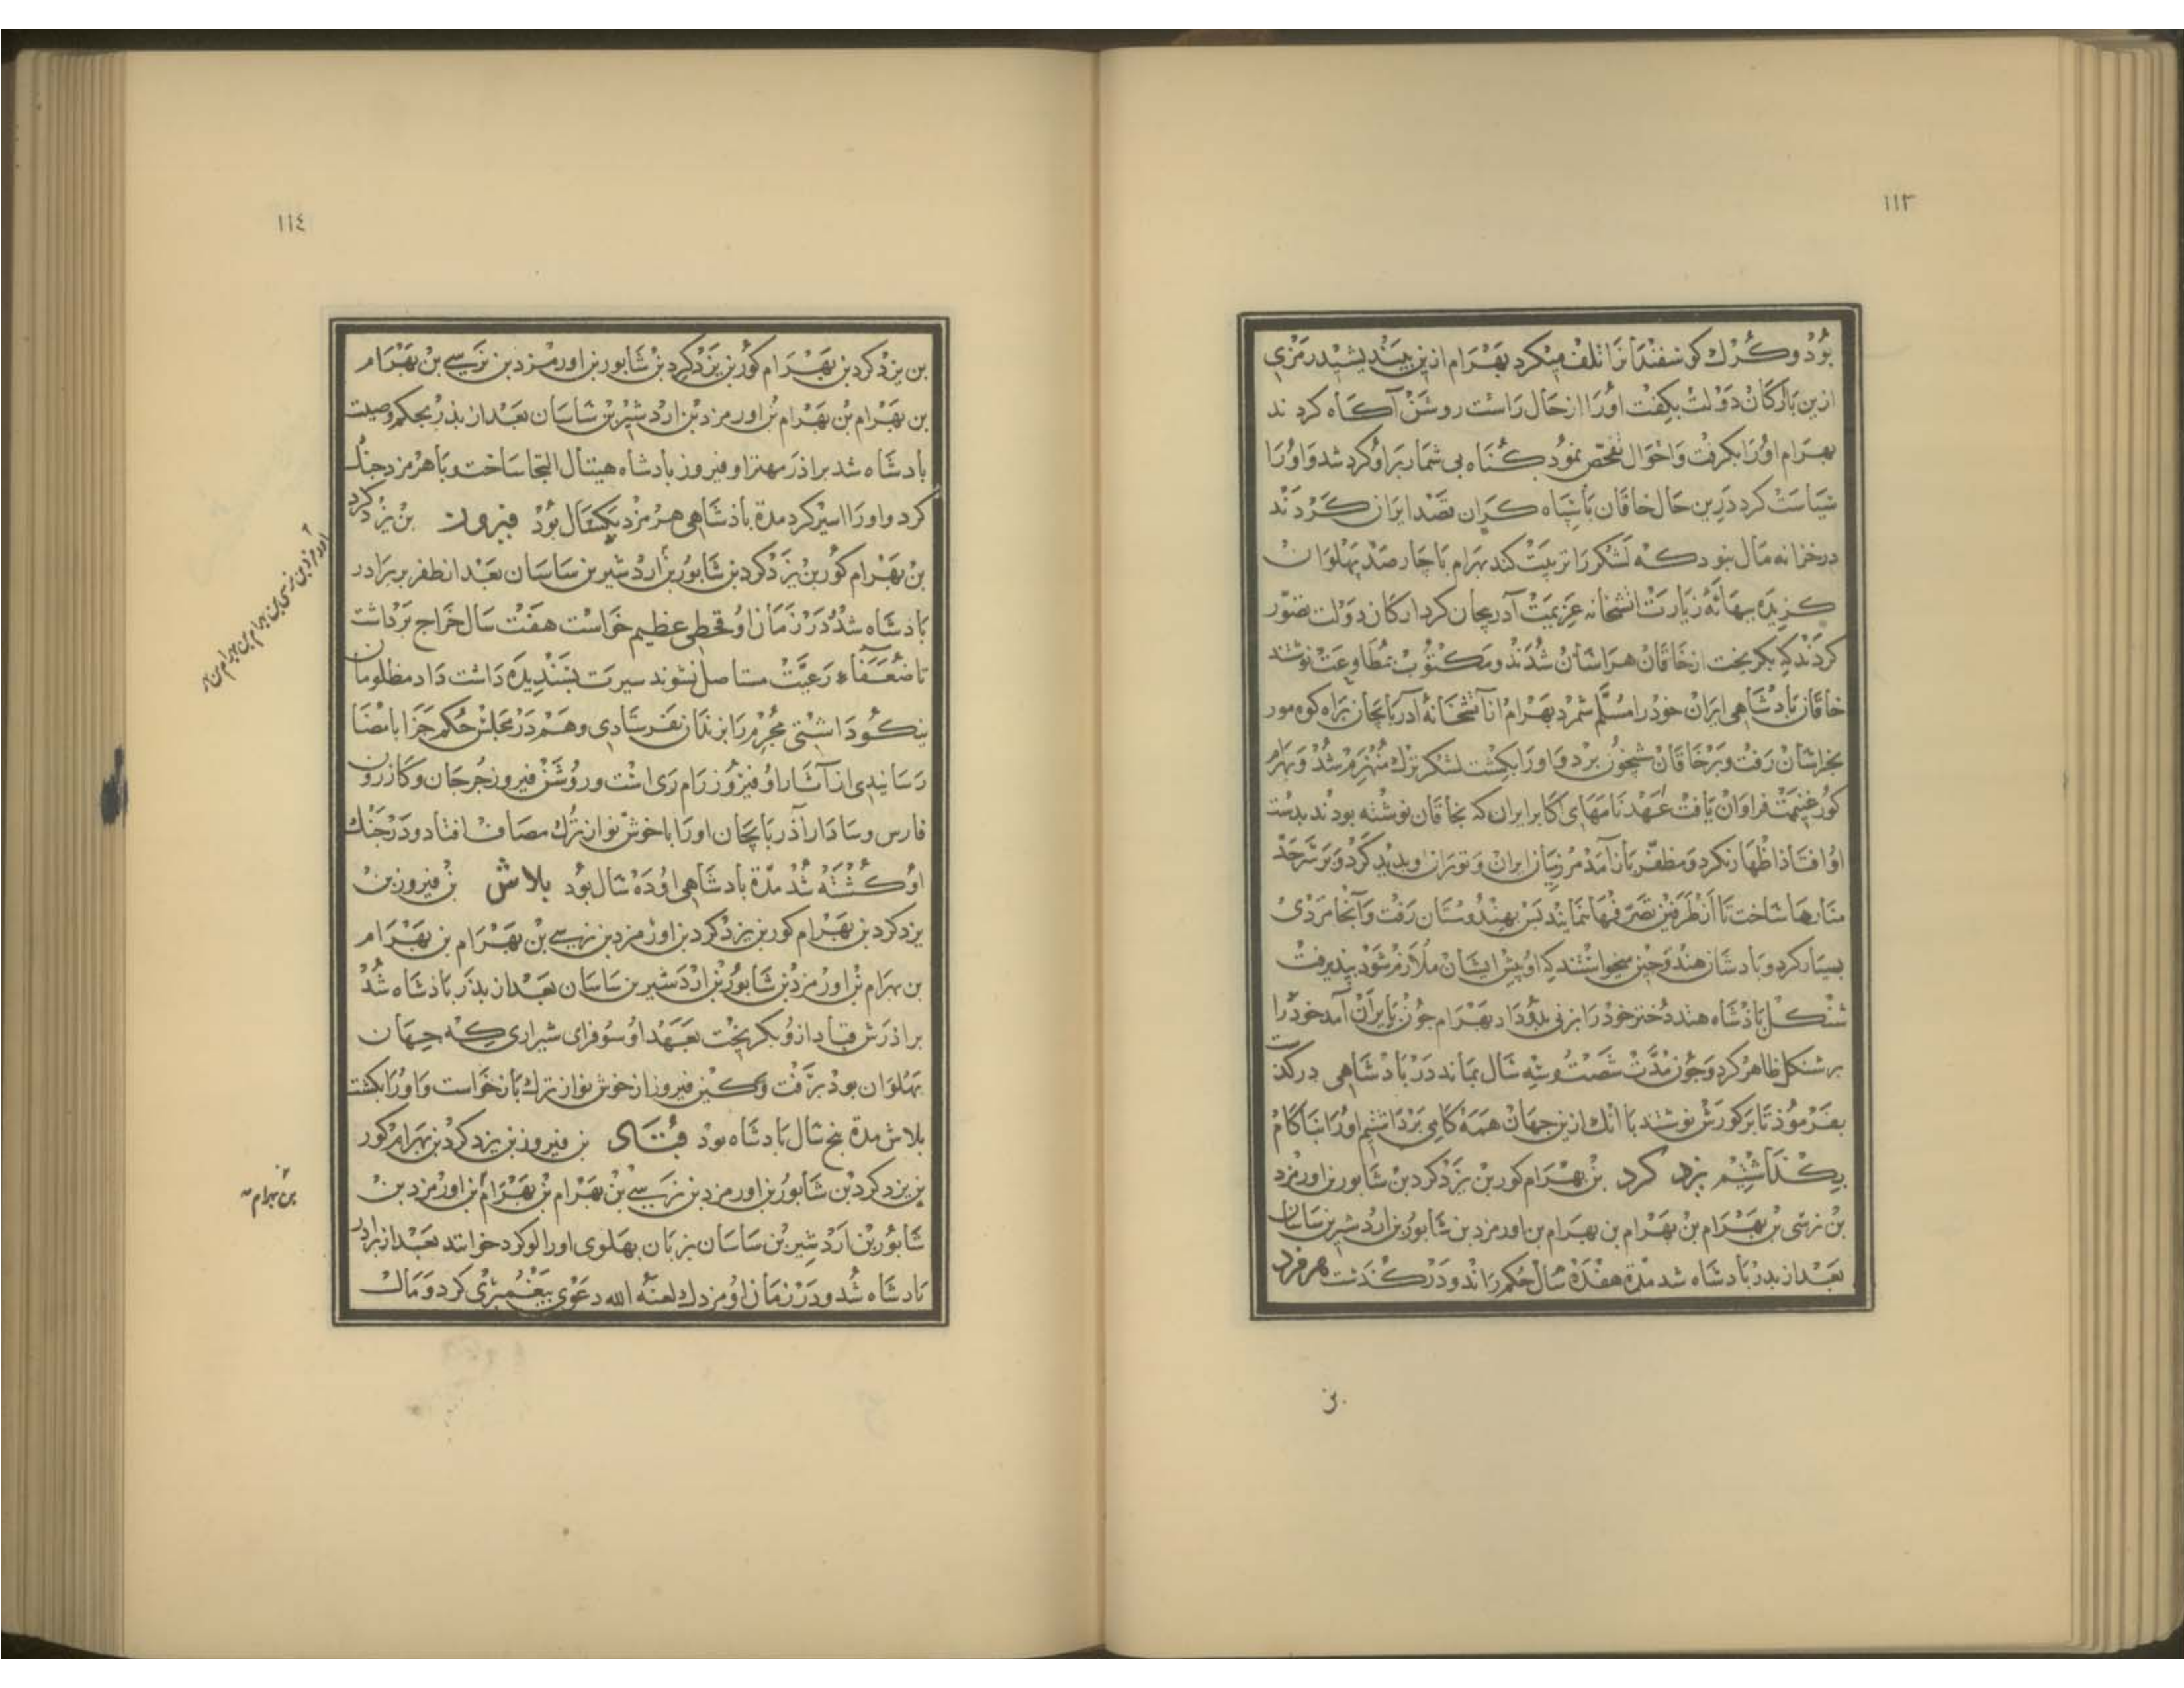 ١١٣
بود و كرك كوسفندانرا تلف ميكرد بهرام ازين بينديشيد رمزى
ازين با اركان دولت بكفت اورا از حال راست روشن آكاه كردند
بهرام اورا بكرفت و احوال تفحص نمود كناه بى شمار براو كرد شد و اورا
سياست كرد درين حال خاقان با سپاه كران قصد ايران كردند
در خزانه مال نبود كه لشكر را تربيت كند بهرام با چارصد پهلوان
كزيده ببهانه زيارت اتشخانه عزيمت آدربيجان كرد اركان دولت تصور
كردند كه بكريخت از خاقان هراسان شدند و مكتوب مطاوعت نوشتند
خاقان بادشاهى ايران خود را مسلم شمرد بهرام از آتشخانه آدربايجان براه كوه مور
بخراسان رفت و بر خاقان شبخون برد و اورا بكشت لشكر ترك منهزم شد و بهرام
كور غنيمت فراوان يافت عهدنامهاى اكابر ايران كه بخاقان نوشته بودند بدست
او افتاد اظهار نكرد و مظفر باز آمد مرزميان ايران و توران و بديد كرد و بر سرحد
منارها ساخت تا از طرفين تصرفها نمايند بس بهندوستان رفت و آنجا مردى
بسيار كرد و بادشاه هند و چين ميخواستند كه او پيش ايشان ملازم شود نپذيرفت
شنكل بادشاه هند دختر خود را بزنى بدو داد بهرام جون بايران آمد خود را
بر شنكل ظاهر كرد و جون مدت شصت و سه سال بماند در بادشاهى دركذشت
بفرمود تا بر كورش نوشتند با انك ازين جهان همه كامى برداشتيم اورا بناكام
بكذاشتيم يزد كرد بن بهرام كور بن يزدكرد بن شابور بن اورمزد
بن نرسى بن بهرام بن بهرام بن بهرام بن اورمزد بن شابور بن اردشير بن ساسان
بعد از بدر بادشاه شد مدة هفده سال حكم راند و دركذشت هرمزد
بن
١١٤
بن يزدكرد بن بهرام كور بن يزدكرد بن شابور بن اورمزد بن نرسى بن بهرام
بن بهرام بن بهرام بن اورمزد بن اردشير بن ساسان بعد از بذر بحكم وصيت
بادشاه شد براذر مهتر او فيروز بادشاه هيتال التجا ساخت و با هرمزد جنك
كرد و اورا اسير كرد مدة بادشاهى هرمزد يكسال بود فيروز بن يزدكرد
بن بهرام كور بن يزدكرد بن شابور بن اردشير بن ساسان بعد از ظفر بر برادر
بادشاه شد و در زمان او قحطى عظيم خواست هفت سال خراج برداشت
تا ضعفاء رعيت مستاصل نشوند سيرت پسنديده داشت داد مظلومان
نيكو داشتى مجرم را بزندان نفرستادى و هم در مجلس حكم جزا بامضا
رسانيدى از آثار او فيروز رام رى است و روشن فيروز جرجان و كازرون
فارس و سادار آذربايجان اورا با خوش نواز ترك مصاف افتاد و در جنك
او كشته شد مدة بادشاهى او ده سال بود بلاش بن فيروز بن
يزدكرد بن بهرام كور بن يزدكرد بن اورمزد بن نرسى بن بهرام بن بهرام
بن بهرام بن اورمزد بن شابور بن اردشير بن ساسان بعد از بذر باذشاه شد
براذرش قباد ازو بكريخت بعهد او سوفراى شيرازى كه جهان
پهلوان بود برفت و كين فيروز از خوش نواز ترك باز خواست و اورا بكشت
بلاش مدة پنج سال بادشاه بود قباد بن فيروز بن يزدكرد بن بهرام كور
بن يزدكرد بن شابور بن اورمزد بن نرسى بن بهرام بن بهرام بن اورمزد بن
شابور بن اردشير بن ساسان بزبان پهلوى اورا لوكرد خوانند بعد از برادر
بادشاه شد و در زمان او مزدك لعنه الله دعوى پيغمبرى كرد و مال
اورمزد بن نرسى بن بهرام بن بهرام بن
بن بهرام